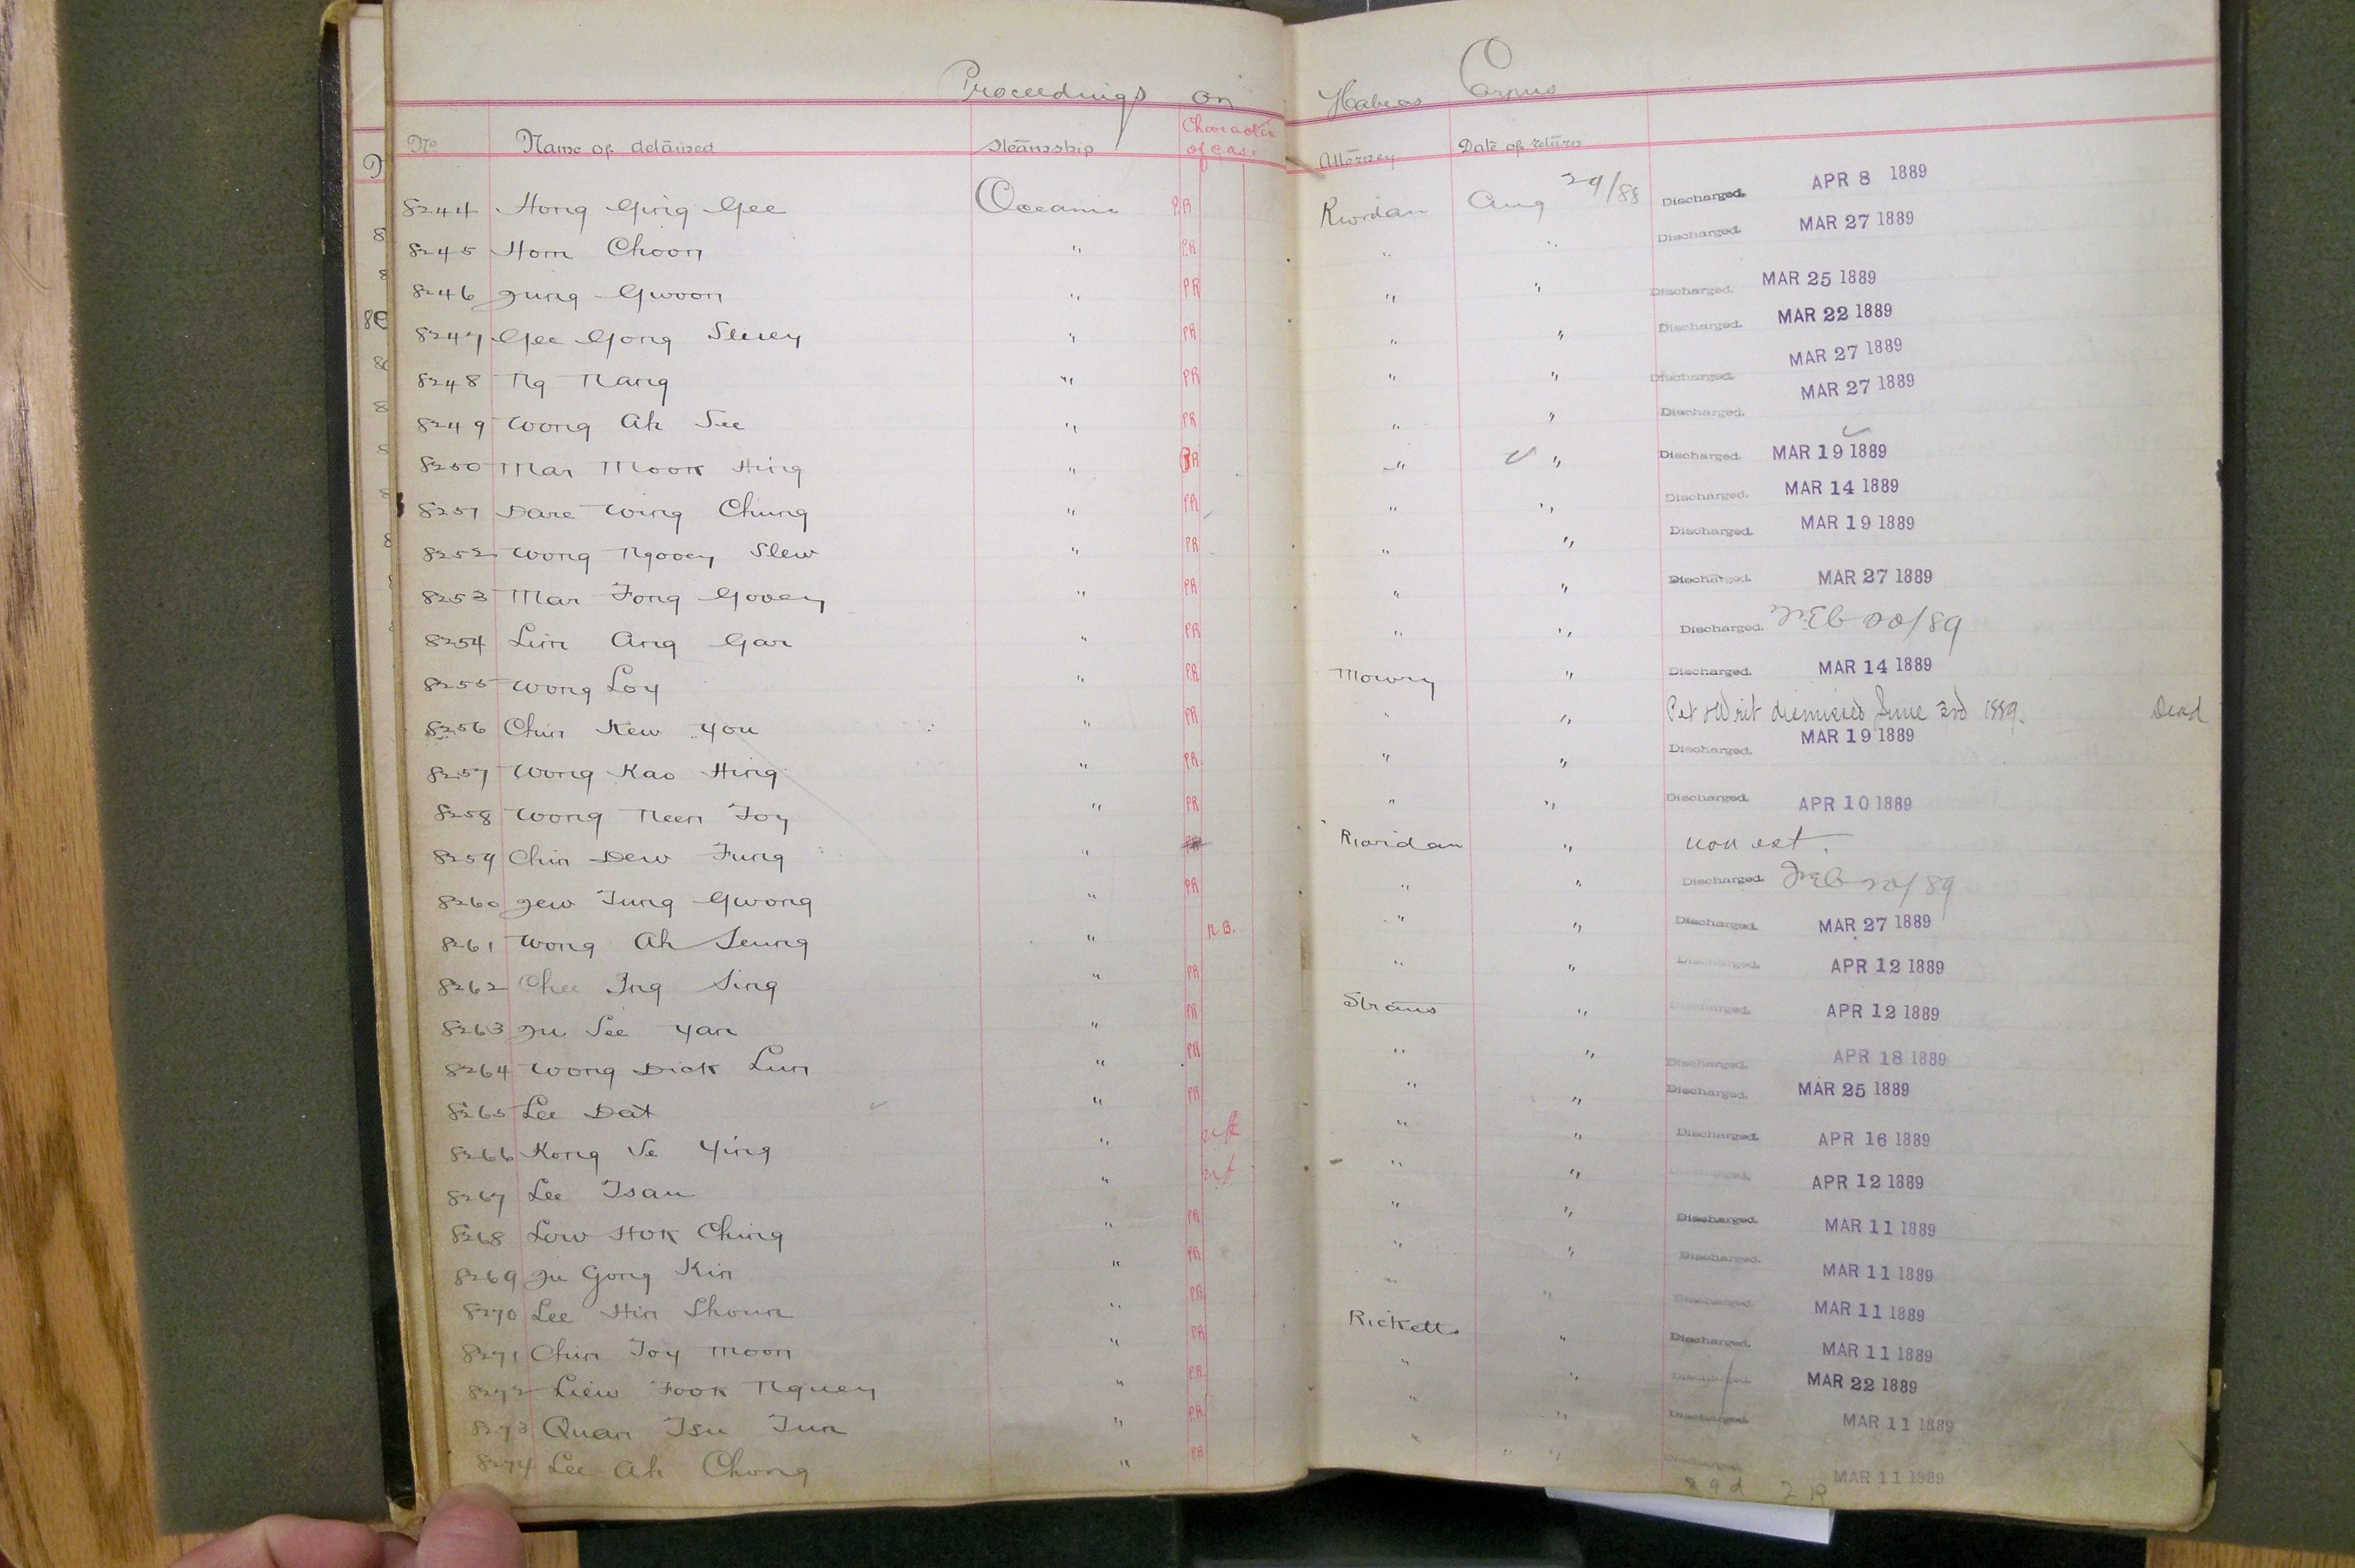 Proceedings on Habeas Corpus
No. Name of detained Steamship Character of case. Attorney Date of return
8244 Hong Ging Gee Oceanic PR Riordan Aug 29/88 Discharged. APR 8 1889
8245 Hom Choon " PR " " Discharged. MAR 27 1889
8246 Jung Gwoon " PR " " Discharged. MAR 25 1889
8247 Gee Gong Sluey " PR " " Discharged. MAR 22 1889
8248 Ng Nang " PR " " Discharged. MAR 27 1889
8249 Wong Ah See " PR " " Discharged. MAR 27 1889
8250 Mar Mook Hing " PR " " Discharged. MAR 19 1889
8251 Dare Wing Chung " PR " " Discharged. MAR 14 1889
8252 Wong Ngooey Slew " PR " " Discharged. MAR 19 1889
8253 Mar Fong Gooey " PR " " Discharged. MAR 27 1889
8254 Lim Ang Gar " PR " " Discharged. Feb 20/89
8255 Wong Loy " PR Mowry " Discharged. MAR 14 1889
8256 Chin Kew You " PR " " Pet & Writ dismissed June 3rd 1889. Dead
8257 Wong Kao Hing " PR " " Discharged. MAR 19 1889
8258 Wong Neen Foy " PR " " Discharged. APR 10 1889
8259 Chin Dew Fung " PR Riordan " non est.
8260 Jew Tung Gwong " PR " " Discharged. Feb 20/89
8261 Wong Ah Seung " N.B. " " Discharged. MAR 27 1889
8262 Chee Ing Sing " PR " " Discharged. APR 12 1889
8263 Ju See Yan " PR Straus " Discharged. APR 12 1889
8264 Wong Dick Lun " PR " " Discharged. APR 18 1889
8265 Lee Dat " PR " " Discharged. MAR 25 1889
8266 Kong Se Ying " " " Discharged. APR 16 1889
8267 Lee Tsau " " " APR 12 1889
8268 Low Hok Ching " PR " " Discharged. MAR 11 1889
8269 Ju Gong Kin " PR " " Discharged. MAR 11 1889
8270 Lee Hin Shoun " PR " " Discharged. MAR 11 1889
8271 Chin Toy Moon " PR Ricketts " Discharged. MAR 11 1889
8272 Liew Fook Nguey " PR " " Discharged. MAR 22 1889
8273 Quan Tsu Tun " PR " " Discharged. MAR 11 1889
8274 Lee Ah Chong " PR " " Discharged. MAR 11 1889